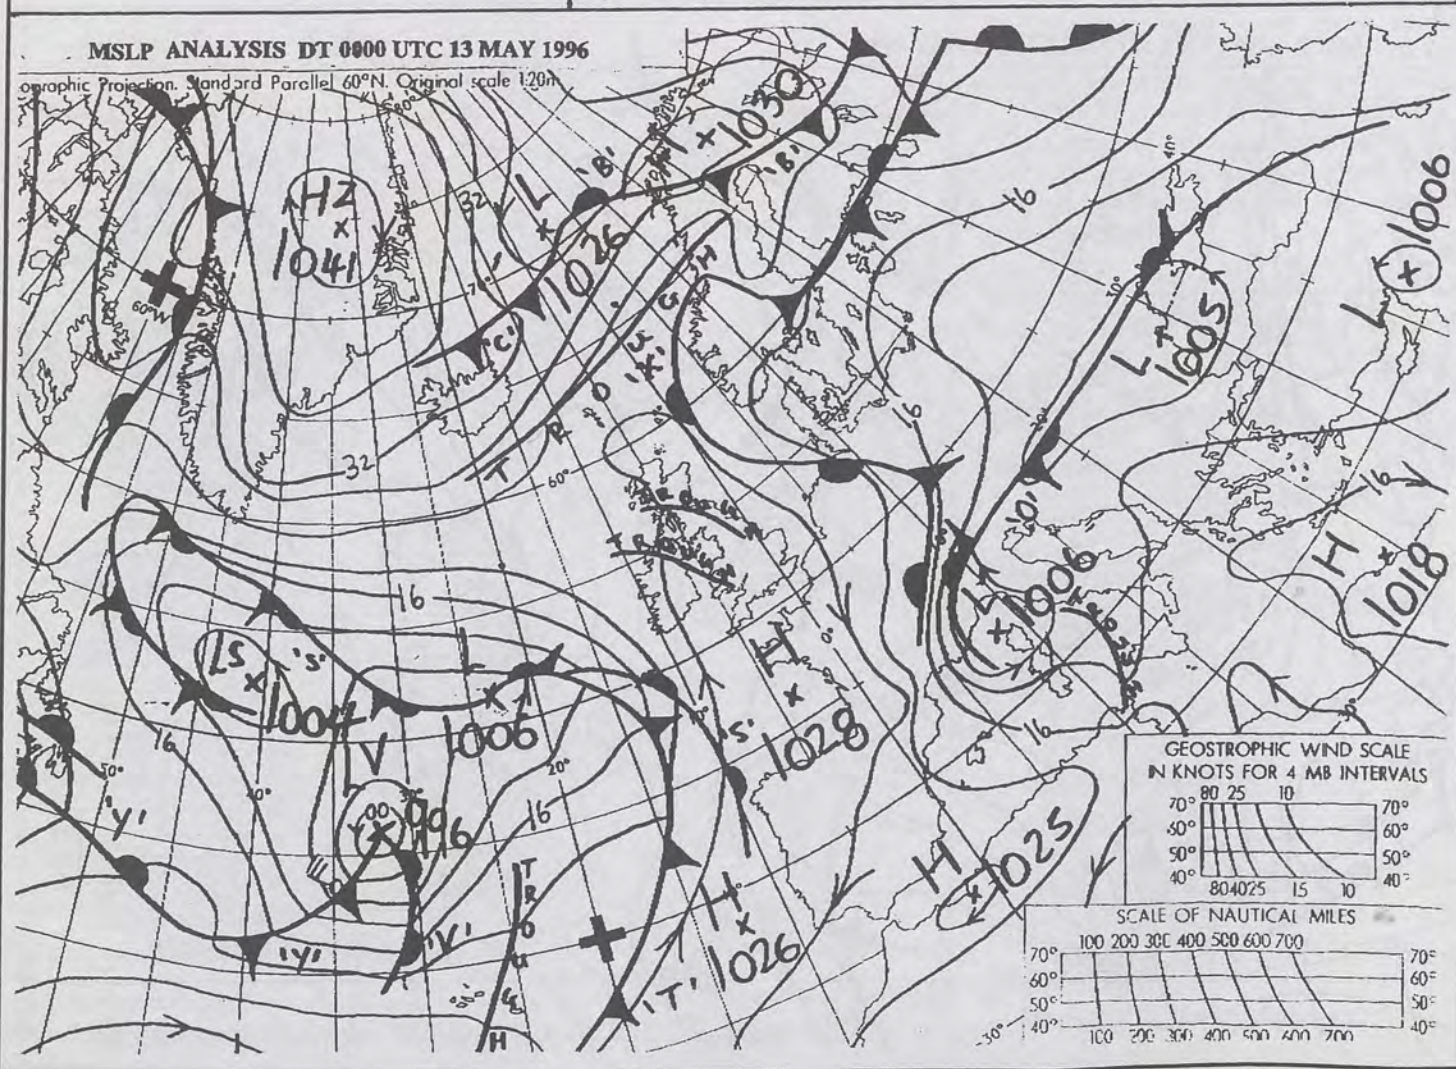 MSLP ANALYSIS DT 0000 UTC 13 MAY 1996
ographic Projection. Standard Parallel 60°N. Original scale 1:20m
HZ
1041
32
L
'B'
1030
'B'
1026
'C'
60°W
70°
TROUGH
'X'
16
40°
L
1006
30°
L
1005
16
32
60°
TROUGH
TROUGH
16
'O'
L
1006
TROUGH
H
1018
16
LS
1004
'S'
L
1006
16
H
1028
0°
'S'
16
30°
50°
40°
30°
20°
LV
996
00
'Y'
'Y'
'V'
16
TROUGH
H
1026
'T'
H
1025
GEOSTROPHIC WIND SCALE
IN KNOTS FOR 4 MB INTERVALS
80 25 10
70° 70°
60° 60°
50° 50°
40° 40°
80 40 25 15 10
SCALE OF NAUTICAL MILES
100 200 300 400 500 600 700
70° 70°
60° 60°
50° 50°
40° 40°
100 200 300 400 500 600 700
30°